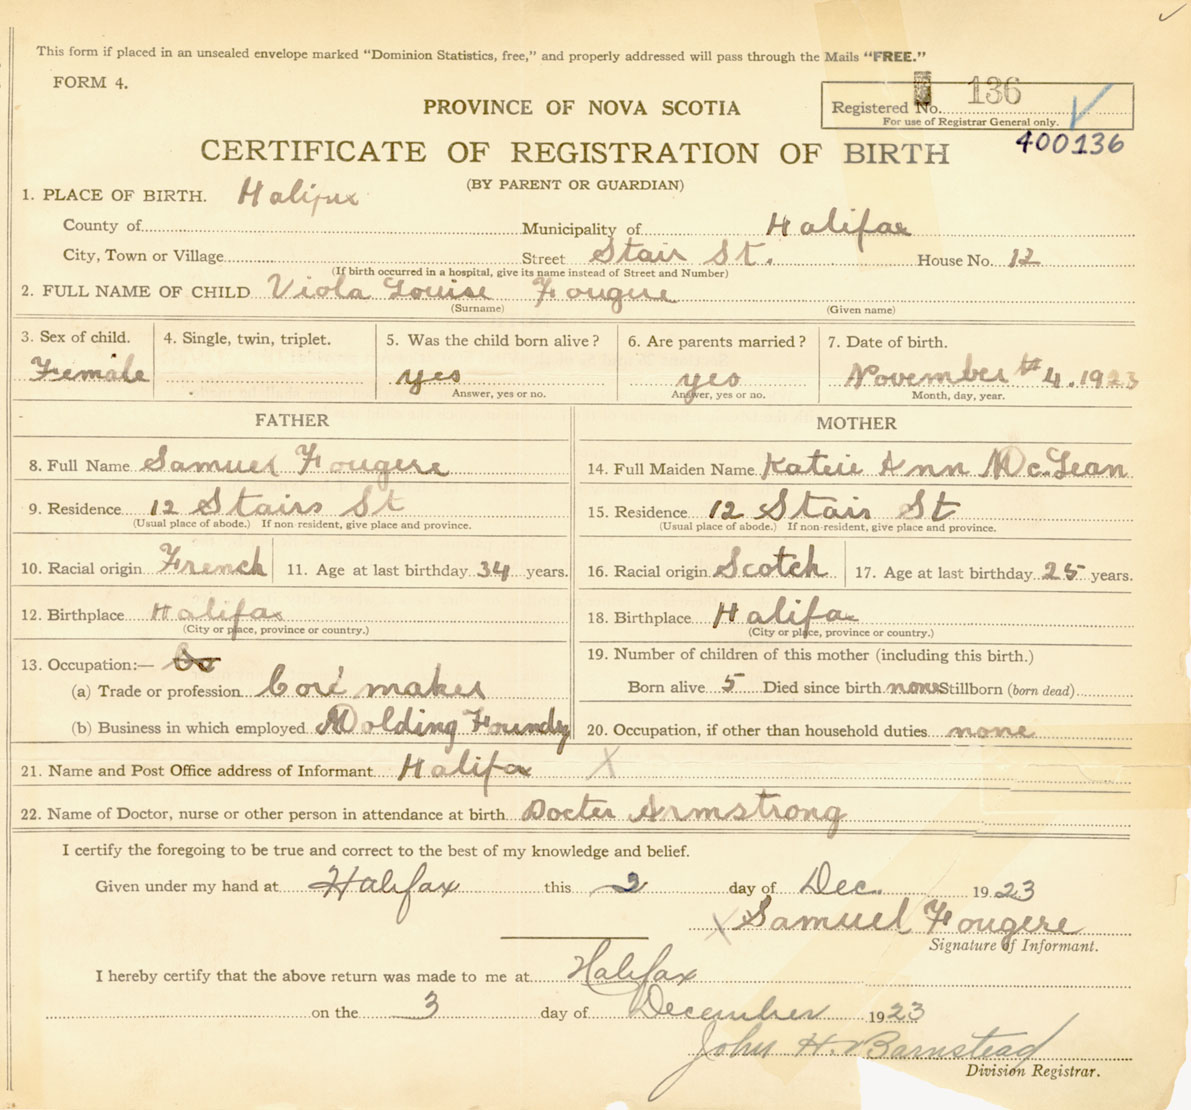 This form if placed in an unsealed envelope marked "Dominion Statistics, free," and properly addressed will pass through the Mails "FREE."
FORM 4.
Registered No. 136
For use of Registrar General only.
PROVINCE OF NOVA SCOTIA
400136
CERTIFICATE OF REGISTRATION OF BIRTH
(BY PARENT OR GUARDIAN)
1. PLACE OF BIRTH. Halifax
County of Municipality of Halifax
City, Town or Village Street Stair St. House No. 12
(If birth occurred in a hospital, give its name instead of Street and Number)
2. FULL NAME OF CHILD Viola Louise Fougere
(Surname) (Given name)
3. Sex of child. 4. Single, twin, triplet. 5. Was the child born alive? 6. Are parents married? 7. Date of birth.
Female yes yes November th 4. 1923
Answer, yes or no. Answer, yes or no. Month, day, year.
FATHER
8. Full Name Samuel Fougere
9. Residence 12 Stairs St
(Usual place of abode.) If non-resident, give place and province.
10. Racial origin French 11. Age at last birthday 34 years.
12. Birthplace Halifax
(City or place, province or country.)
13. Occupation:—
(a) Trade or profession Core maker
(b) Business in which employed Molding Foundy
MOTHER
14. Full Maiden Name Katie Ann McLean
15. Residence 12 Stair St
(Usual place of abode.) If non-resident, give place and province.
16. Racial origin Scotch 17. Age at last birthday 25 years.
18. Birthplace Halifax
(City or place, province or country.)
19. Number of children of this mother (including this birth.)
Born alive 5 Died since birth none Stillborn (born dead)
20. Occupation, if other than household duties none
21. Name and Post Office address of Informant Halifax X
22. Name of Doctor, nurse or other person in attendance at birth Docter Armstrong
I certify the foregoing to be true and correct to the best of my knowledge and belief.
Given under my hand at Halifax this 2 day of Dec. 1923
X Samuel Fougere
Signature of Informant.
I hereby certify that the above return was made to me at Halifax
on the 3 day of December 1923
John H. Barnstead
Division Registrar.